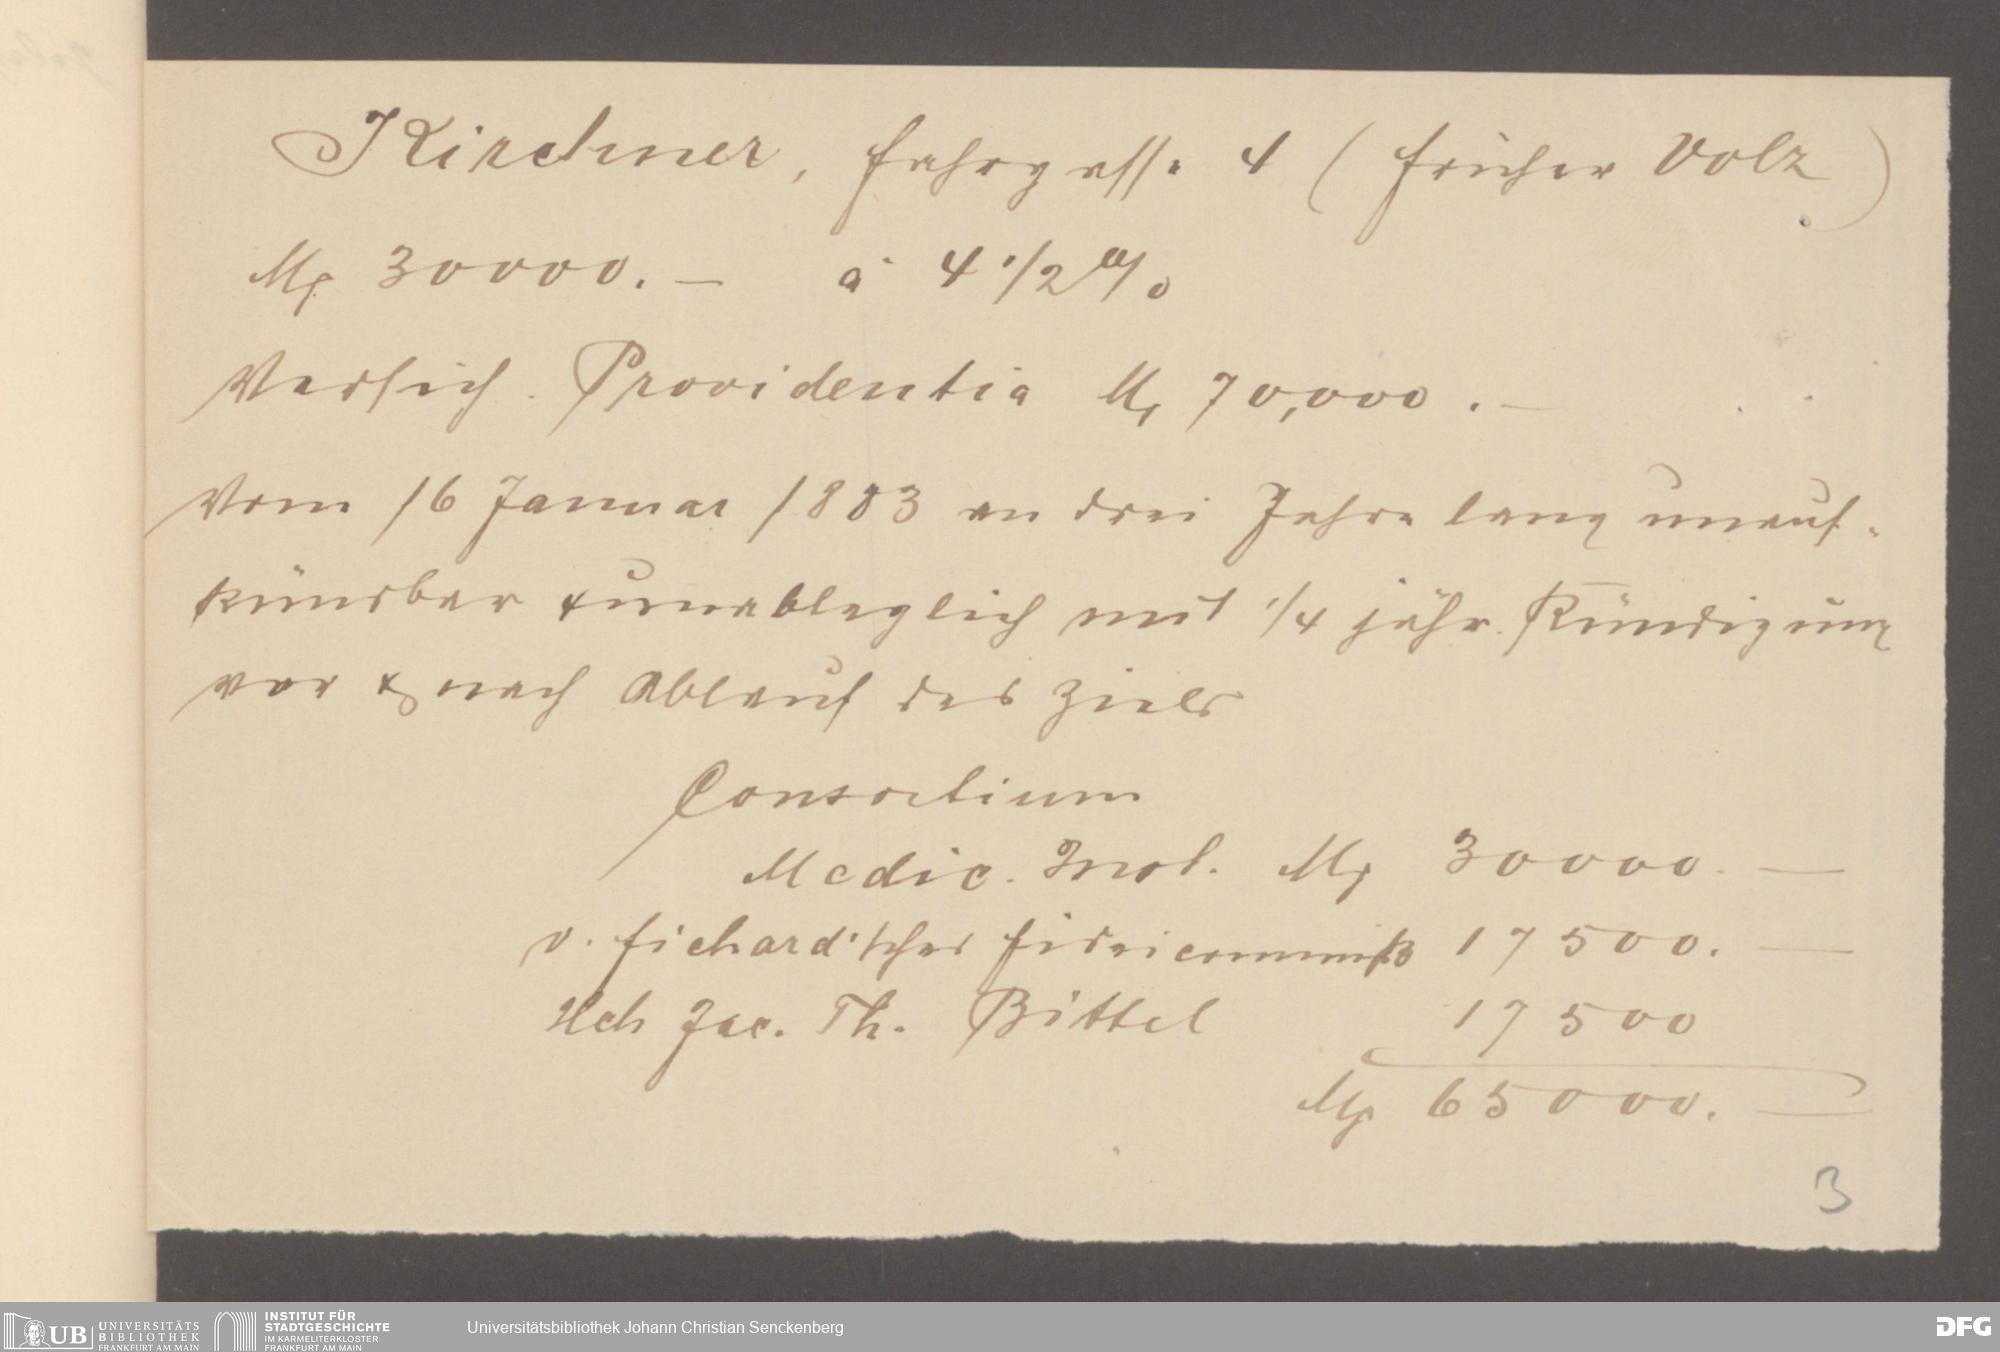 Kirchner, Fahrgasse 4 (früher Volz)
M 30000.— à 4 1/2 %
Versich. Providentia M 70,000.—
Vom 16 Januar 1883 an drei Jahre lang unauf-
kündbar & unableglich mit 1/4 jähr. Kündigung
vor & nach Ablauf des Ziels
Consortium
Medic. Inst. M 30000.—
v. Fichard'sches Fideicommiß 17500.—
Hch Jac. Th. Bittel 17500
M 65000.—
3
UB UNIVERSITÄTS BIBLIOTHEK FRANKFURT AM MAIN
INSTITUT FÜR STADTGESCHICHTE IM KARMELITERKLOSTER FRANKFURT AM MAIN
Universitätsbibliothek Johann Christian Senckenberg
DFG